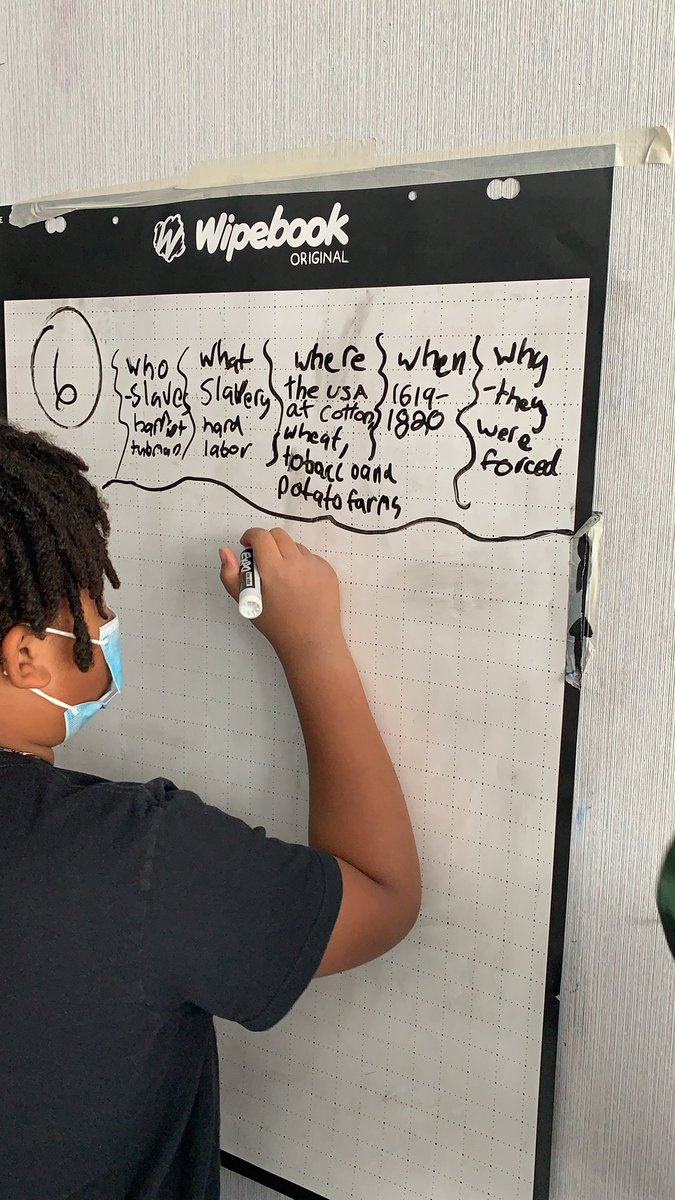 Wipebook
ORIGINAL
6
who
-slaves
harriet
tubman
what
Slavery
hard
labor
where
the USA
at cotton,
wheat,
tobacco and
potato farms
when
1619-
1820
why
-they
were
forced